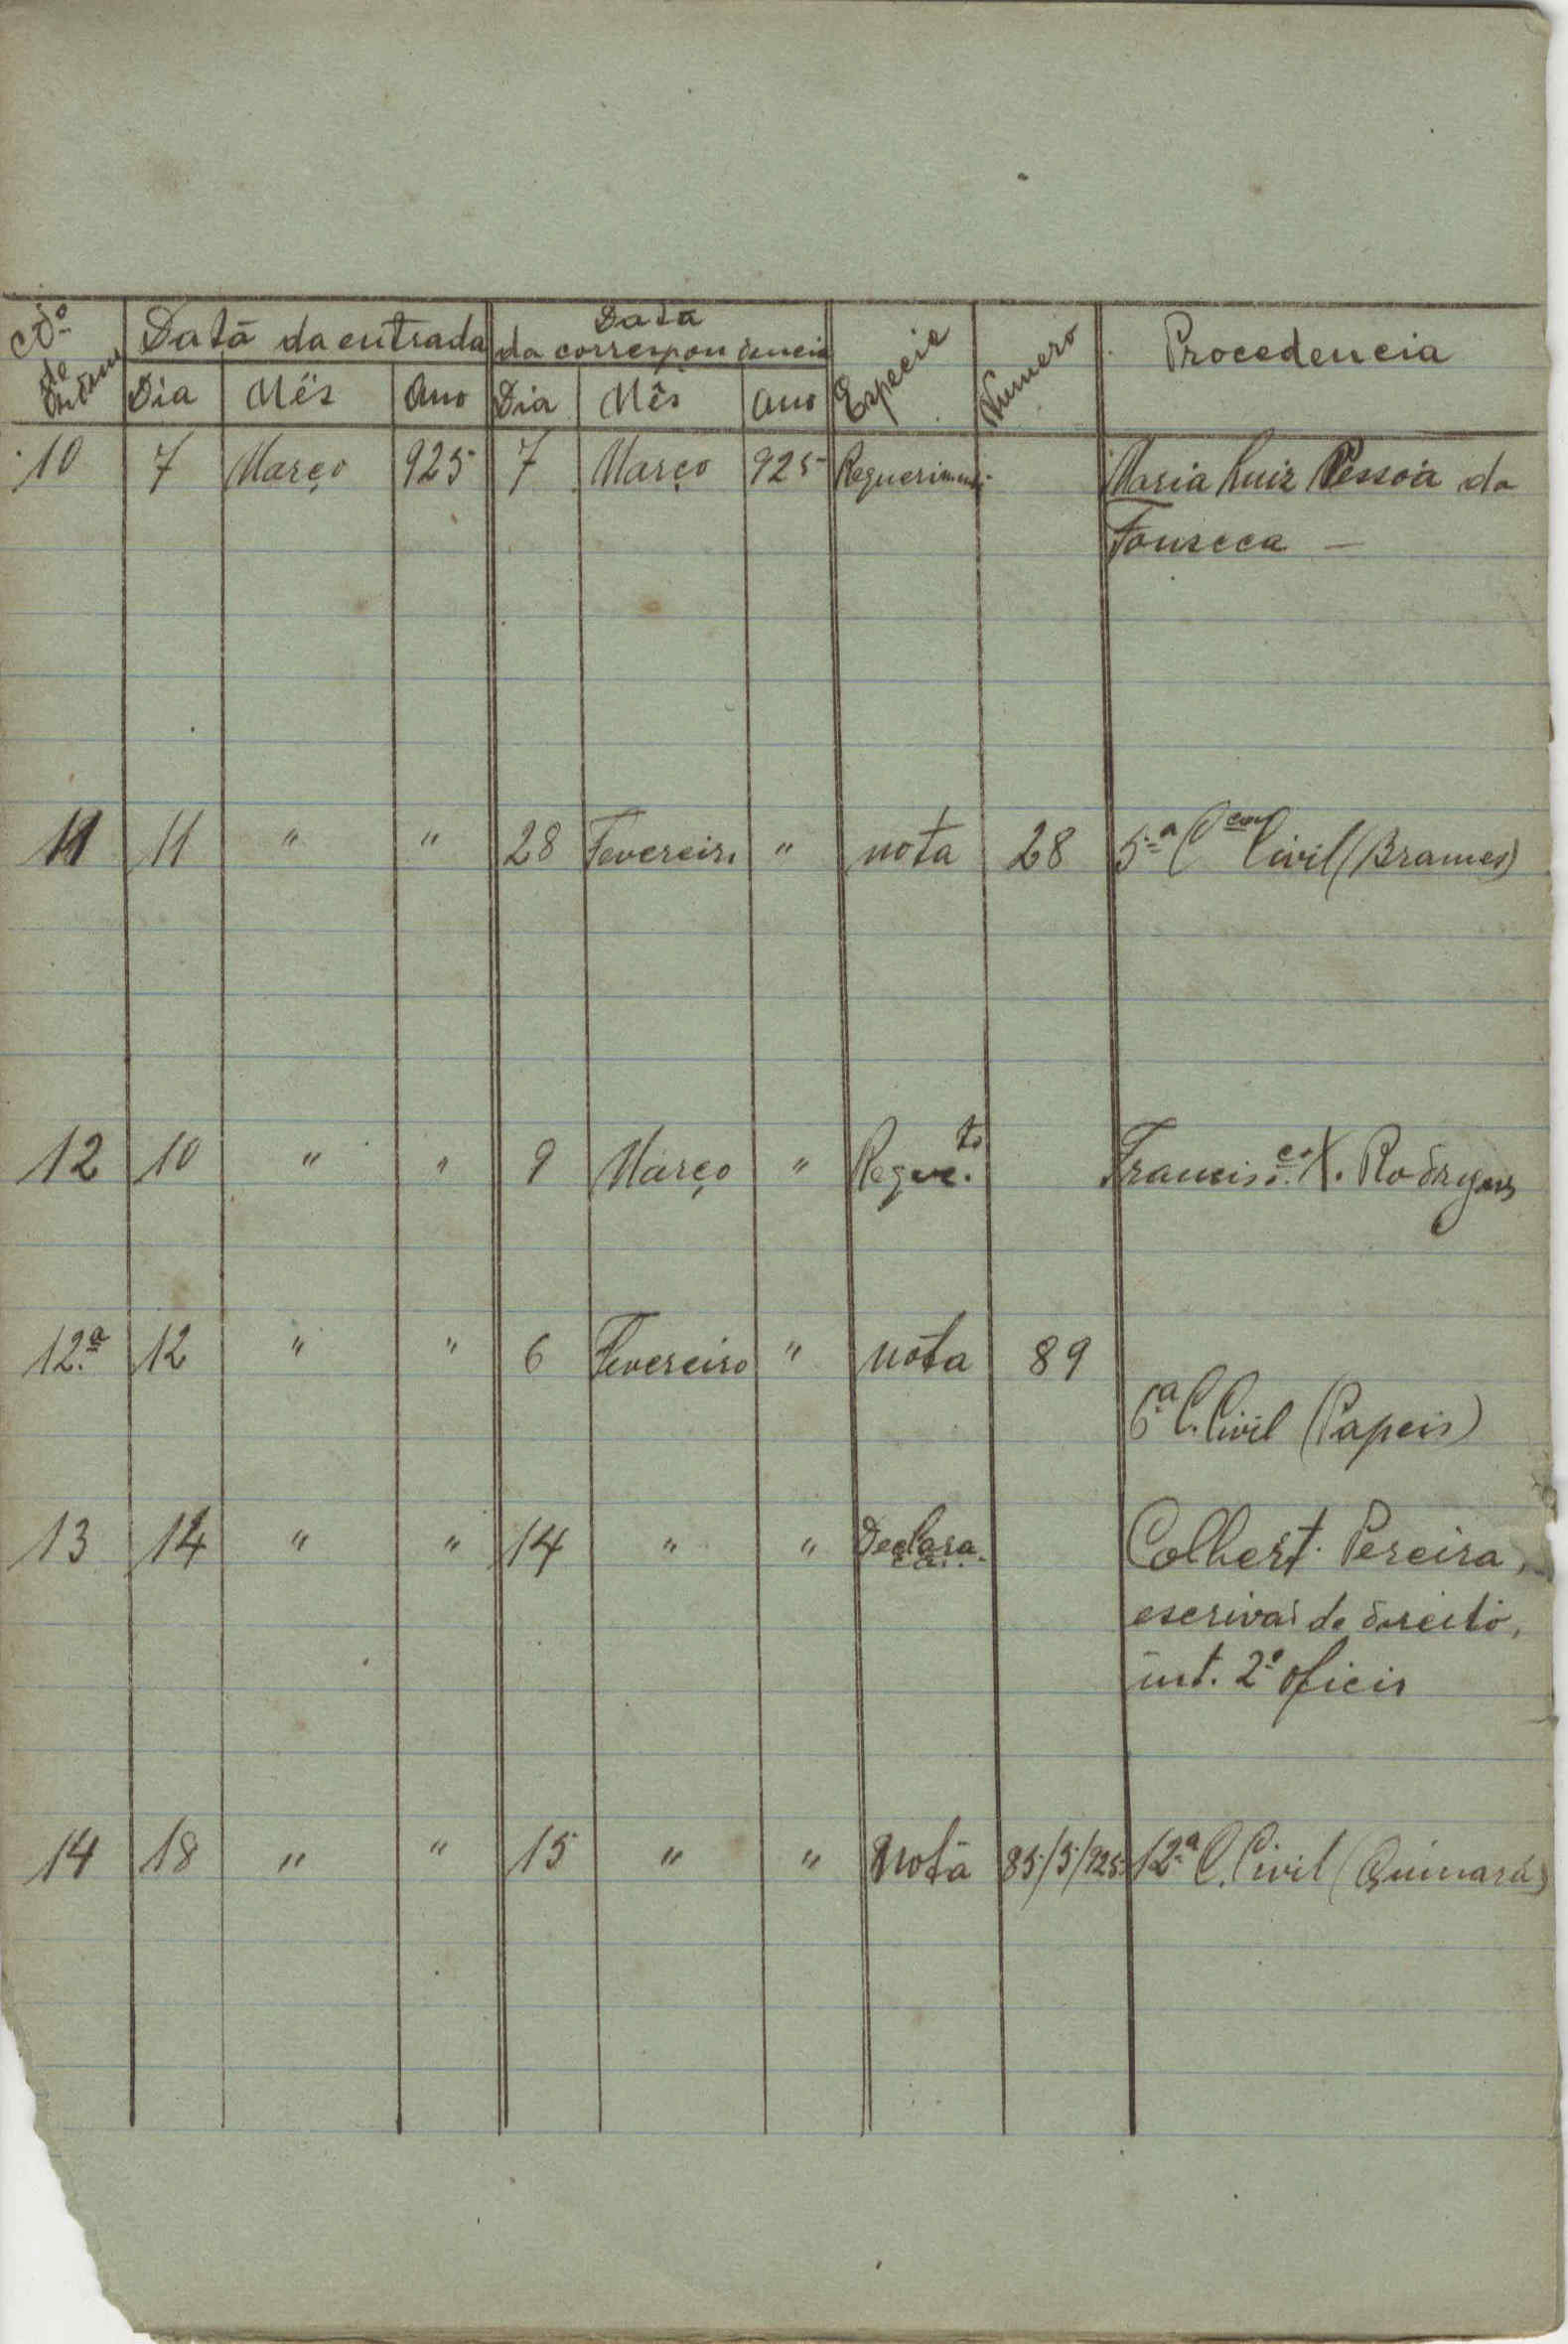 Nº de Ordem Data da entrada Data da correspondencia Especie Numero Procedencia
Dia Mês Ano Dia Mês Ano
10 7 Março 925 7 Março 925 Requerimen. Maria Luiz Pessoa da
Fonseca —
11 11 " " 28 Fevereiro " nota 28 5ª Ccao Civil (Brames)
12 10 " " 9 Março " Reque.to Francisco X. Rodrigues
12.ª 12 " " 6 Fevereiro " nota 89
6ª C. Civil (Papeis)
13 14 " " 14 " " Declara Colbert Pereira,
escrivão de direito,
int. 2º oficio
14 18 " " 15 " " Nota 85/5/925 12ª C. Civil (Quinará)